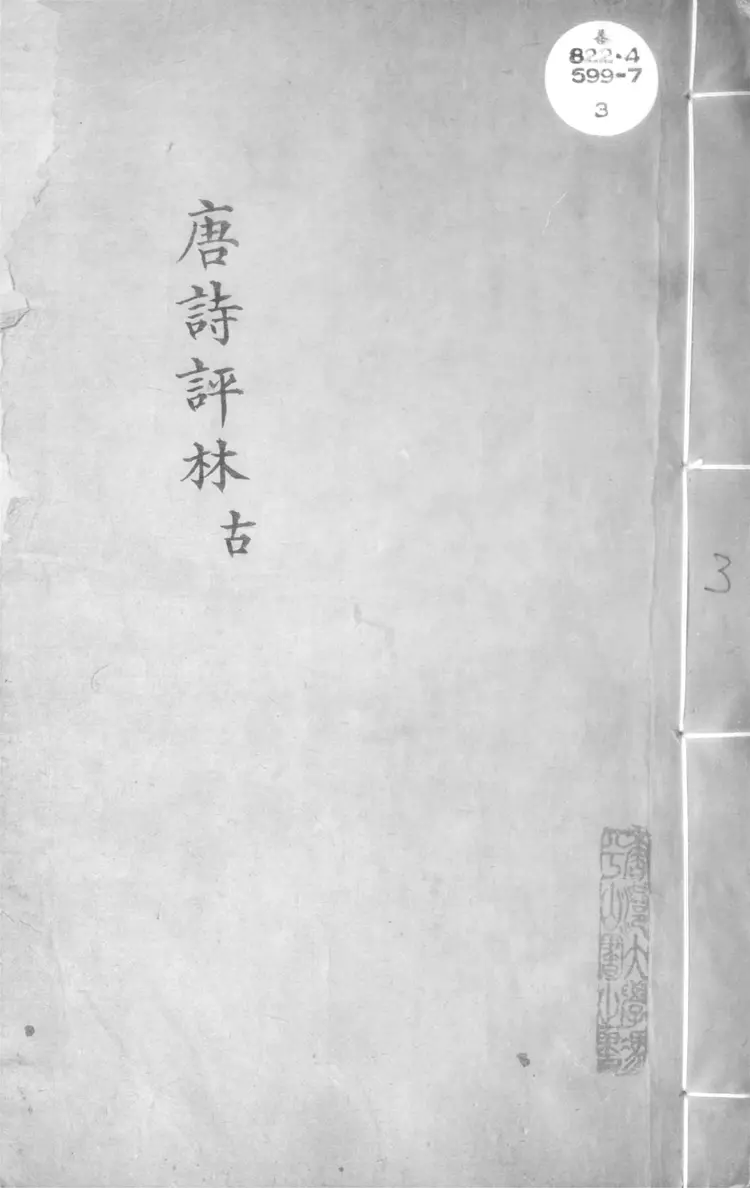 善
822·4
599-7
3
唐詩評林 古
3